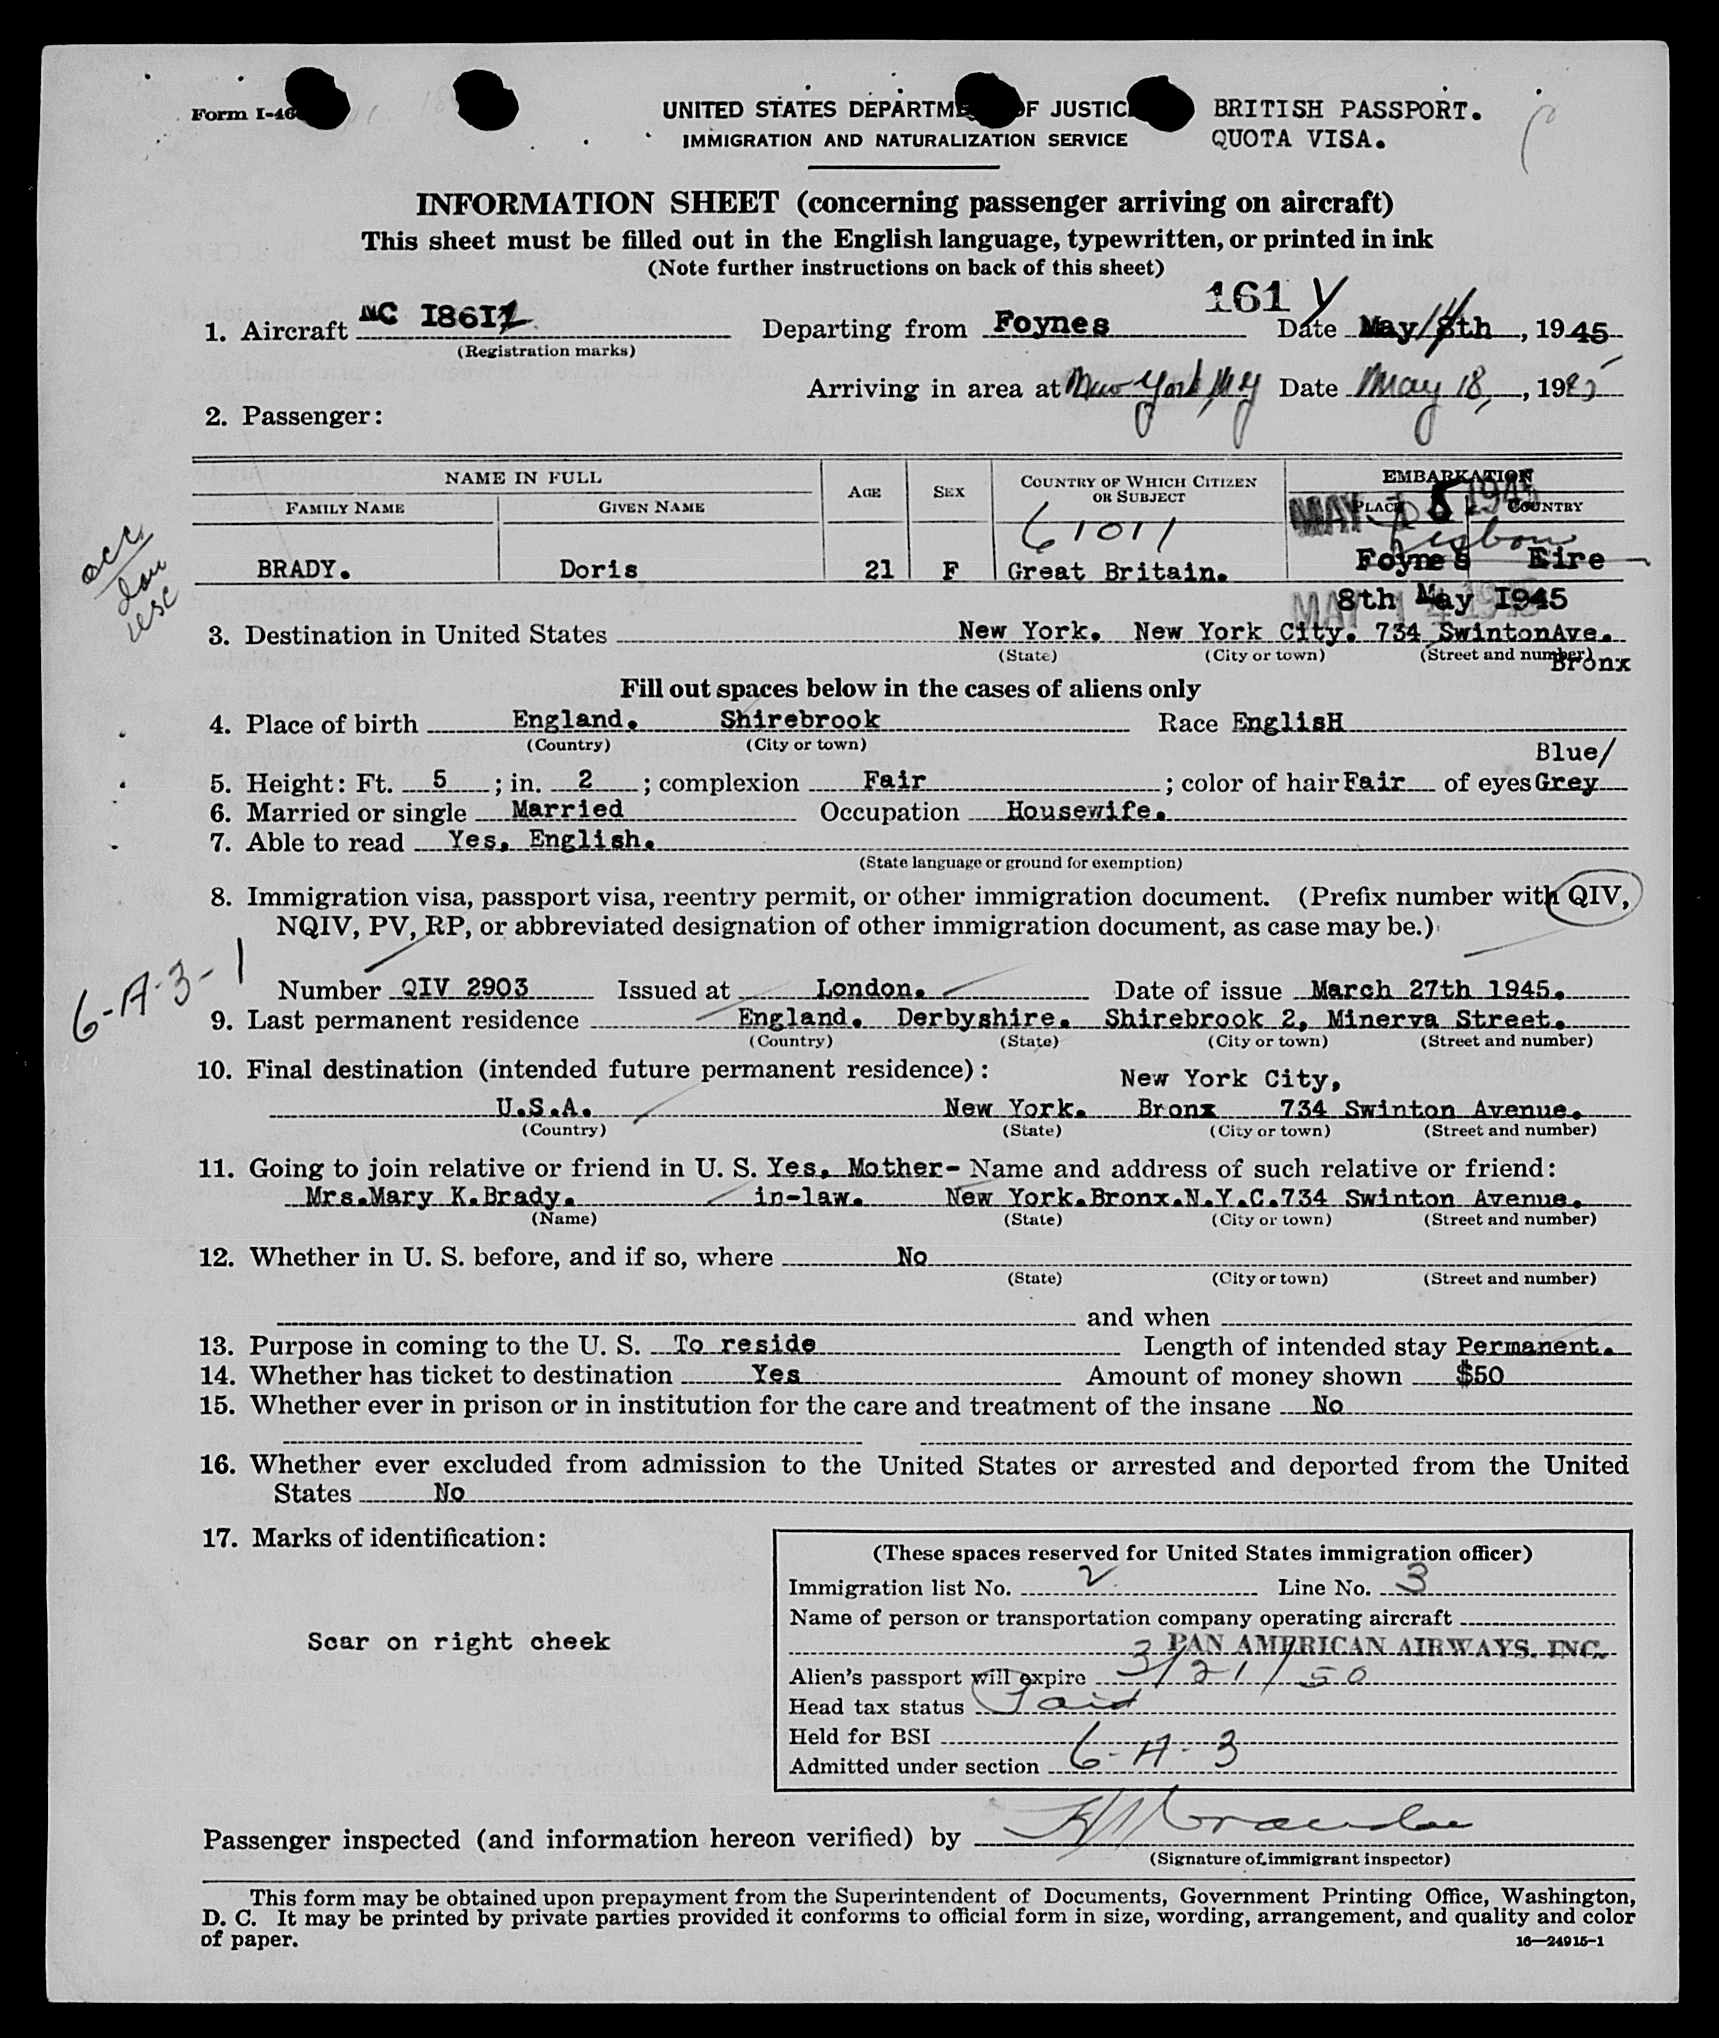 Form I-46
UNITED STATES DEPARTM OF JUSTIC
BRITISH PASSPORT.
IMMIGRATION AND NATURALIZATION SERVICE
QUOTA VISA.
INFORMATION SHEET (concerning passenger arriving on aircraft)
This sheet must be filled out in the English language, typewritten, or printed in ink
(Note further instructions on back of this sheet)
161
1. Aircraft NC I86I2 Departing from Foynes Date May 8th, 1945
(Registration marks)
Arriving in area at New York NY Date May 18, 1945
2. Passenger:
NAME IN FULL AGE SEX COUNTRY OF WHICH CITIZEN OR SUBJECT EMBARKATION
FAMILY NAME GIVEN NAME PLACE COUNTRY
MAY 1945
61011 Lisbon
BRADY. Doris 21 F Great Britain. Foynes Eire
8th May I945
acc
3. Destination in United States New York. New York City. 734 SwintonAve.
(State) (City or town) (Street and number)
Bronx
Fill out spaces below in the cases of aliens only
4. Place of birth England. Shirebrook Race EnglisH
(Country) (City or town)
Blue/
5. Height: Ft. 5; in. 2; complexion Fair; color of hair Fair of eyes Grey
6. Married or single Married Occupation Housewife.
7. Able to read Yes, English.
(State language or ground for exemption)
8. Immigration visa, passport visa, reentry permit, or other immigration document. (Prefix number with QIV,
NQIV, PV, RP, or abbreviated designation of other immigration document, as case may be.)
6-A-3-1
Number QIV 2903 Issued at London. Date of issue March 27th 1945.
9. Last permanent residence England. Derbyshire. Shirebrook 2, Minerva Street.
(Country) (State) (City or town) (Street and number)
10. Final destination (intended future permanent residence):
New York City,
U.S.A. New York. Bronx 734 Swinton Avenue.
(Country) (State) (City or town) (Street and number)
11. Going to join relative or friend in U. S. Yes, Mother- Name and address of such relative or friend:
Mrs.Mary K.Brady. in-law. New York.Bronx.N.Y.C.734 Swinton Avenue.
(Name) (State) (City or town) (Street and number)
12. Whether in U. S. before, and if so, where No
(State) (City or town) (Street and number)
and when
13. Purpose in coming to the U. S. To reside Length of intended stay Permanent.
14. Whether has ticket to destination Yes Amount of money shown $50
15. Whether ever in prison or in institution for the care and treatment of the insane No
16. Whether ever excluded from admission to the United States or arrested and deported from the United
States No
17. Marks of identification:
Scar on right cheek
(These spaces reserved for United States immigration officer)
Immigration list No. 2 Line No. 3
Name of person or transportation company operating aircraft
PAN AMERICAN AIRWAYS, INC.
Alien's passport will expire 3/21/50
Head tax status Paid
Held for BSI
Admitted under section 6-A-3
Passenger inspected (and information hereon verified) by
(Signature of immigrant inspector)
This form may be obtained upon prepayment from the Superintendent of Documents, Government Printing Office, Washington,
D. C. It may be printed by private parties provided it conforms to official form in size, wording, arrangement, and quality and color
of paper.
16—24915-1